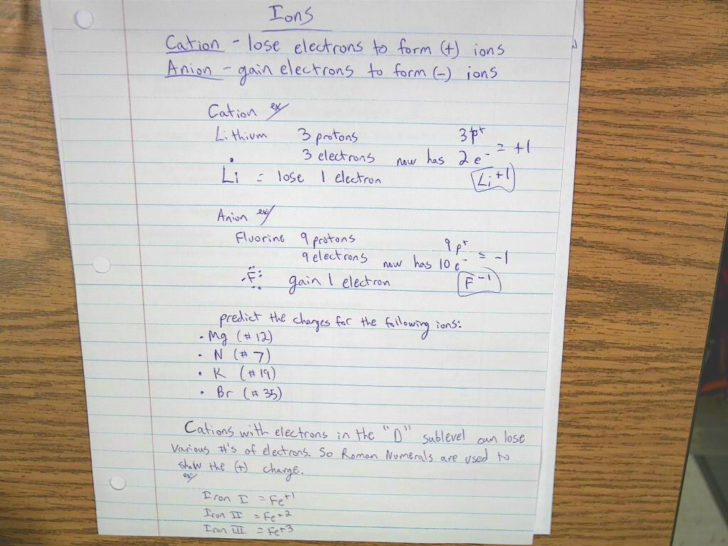 Ions
Cation - lose electrons to form (+) ions
Anion - gain electrons to form (-) ions
Cation ex/
Lithium 3 protons 3p⁺
3 electrons now has 2e⁻ = +1
Li = lose 1 electron Li⁺¹
Anion ex/
Fluorine 9 protons 9p⁺
9 electrons now has 10e⁻ = -1
F gain 1 electron F⁻¹
predict the charges for the following ions:
• Mg (#12)
• N (#7)
• K (#19)
• Br (#35)
Cations with electrons in the "D" sublevel can lose
various #'s of electrons. So Roman Numerals are used to
show the (+) charge.
ex/
Iron I = Fe⁺¹
Iron II = Fe⁺²
Iron III = Fe⁺³